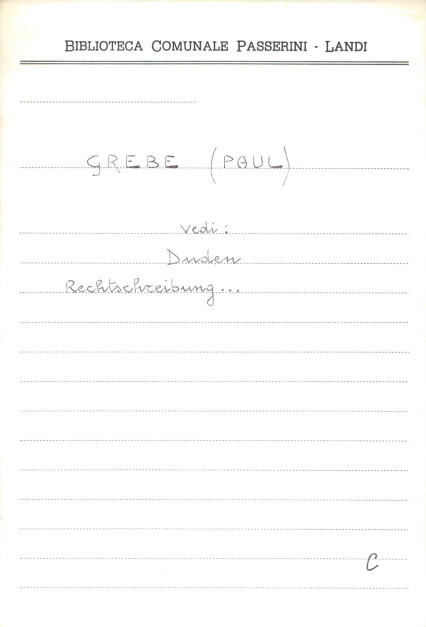 BIBLIOTECA COMUNALE PASSERINI - LANDI
GREBE (PAUL)
vedi:
Duden
Rechtschreibung...
C